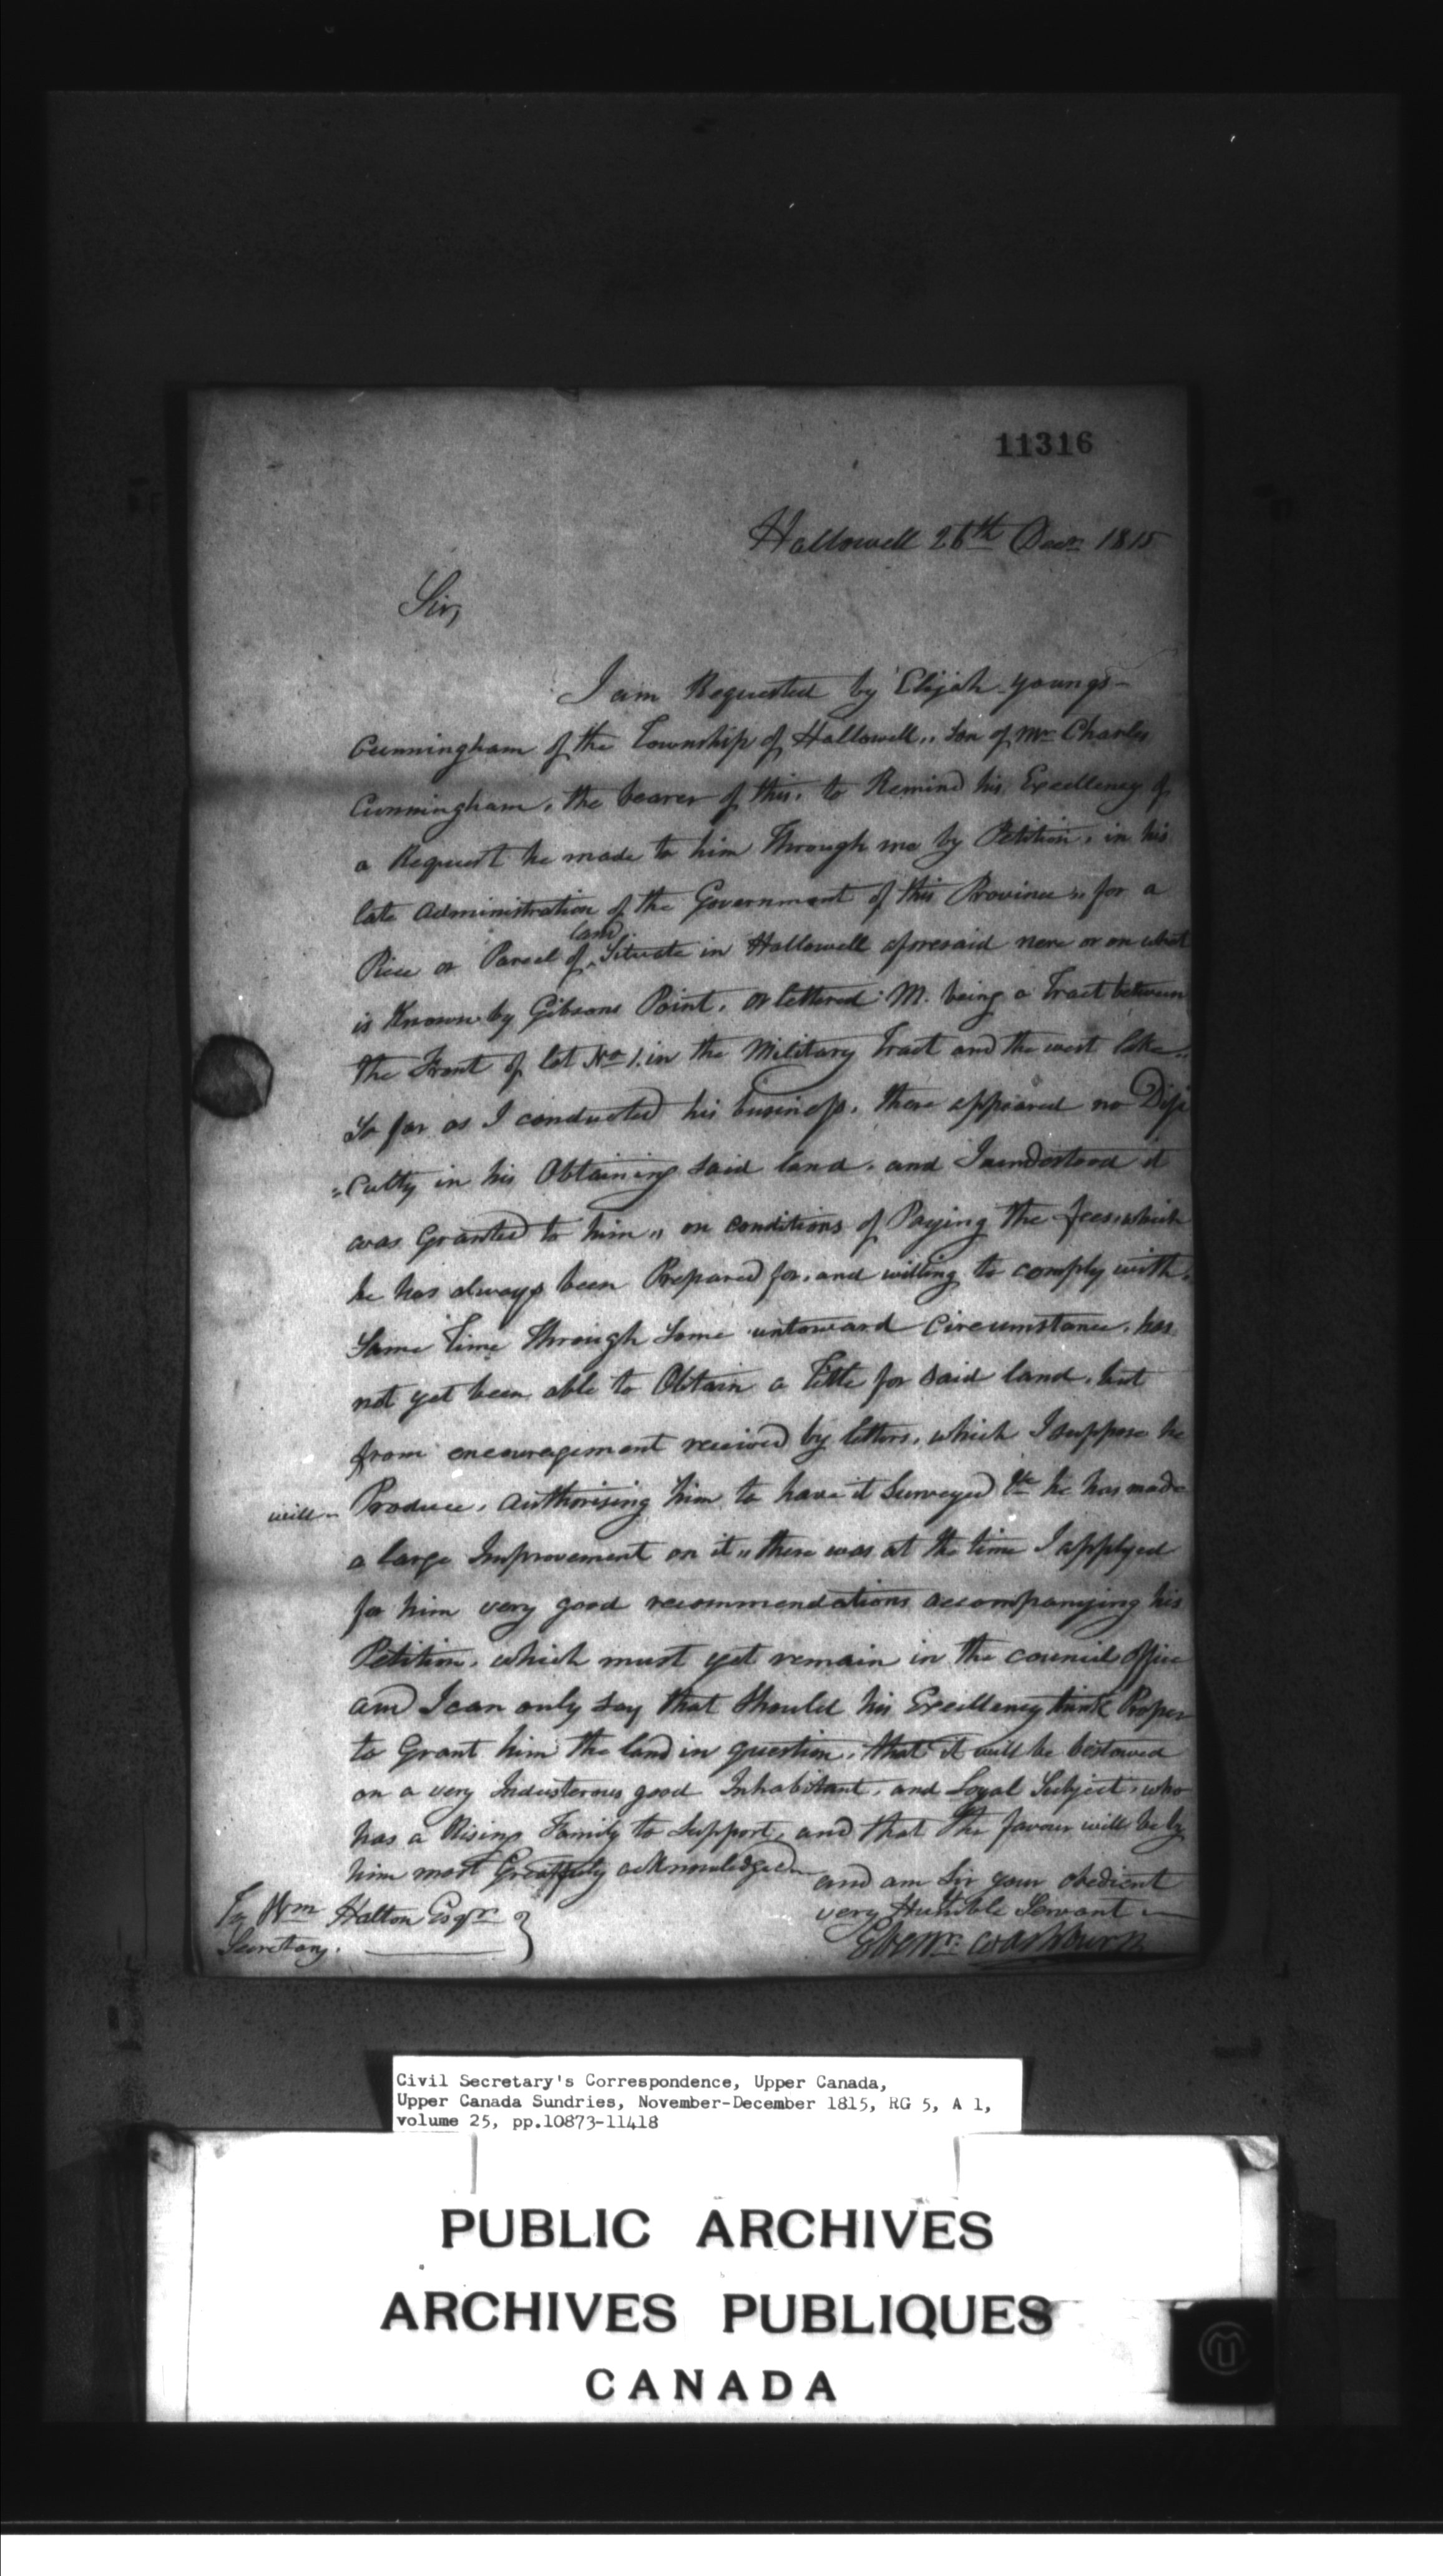 11316
Hallowell 26th Decr 1815
Sir,
I am Requested by Elijah youngs-
Cunningham of the Township of Hallowell,, Son of Mr Charles
Cunningham, the bearer of this, to Remind his Excellency of
a Request he made to him Through me by Petition, in his
late Administration of the Government of this Province,, for a
land
Piece or Parcel of Situate in Hallowell aforesaid near or on what
is Known by Gibsons Point, or lettered M. being a Tract between
the Front of lot No 1. in the Military Tract and the west lake,,
So far as I conducted his business, there appeared no Diffi
=culty in his Obtaining said land, and I understood it
was Granted to him,, on conditions of Paying the fees, which
he has always been Prepared for, and willing to comply with,
Same Time Through Some untoward Circumstance, has
not yet been able to Obtain a Title for said land, but
from encouragement received by letters, which I suppose he
will Produce, authorising him to have it Surveyed &c he has made
a large Improvement on it,, there was at the time I applyed
for him very good recommendations accompanying his
Petition, which must yet remain in the council office
and I can only say that Should his Excellency think Proper
to Grant him the land in question, that it will be bestowed
on a very Industerous good Inhabitant, and Loyal Subject, who
has a Rising Family to Support, and that the favour will be by
him most Greatfuly acknowledged
and am Sir your obedient
very Humble Servant
Ebenr. Washburn
To Wm Halton Esqr
Secretary.
Civil Secretary's Correspondence, Upper Canada,
Upper Canada Sundries, November-December 1815, RG 5, A 1,
volume 25, pp.10873-11418
PUBLIC ARCHIVES
ARCHIVES PUBLIQUES
CANADA